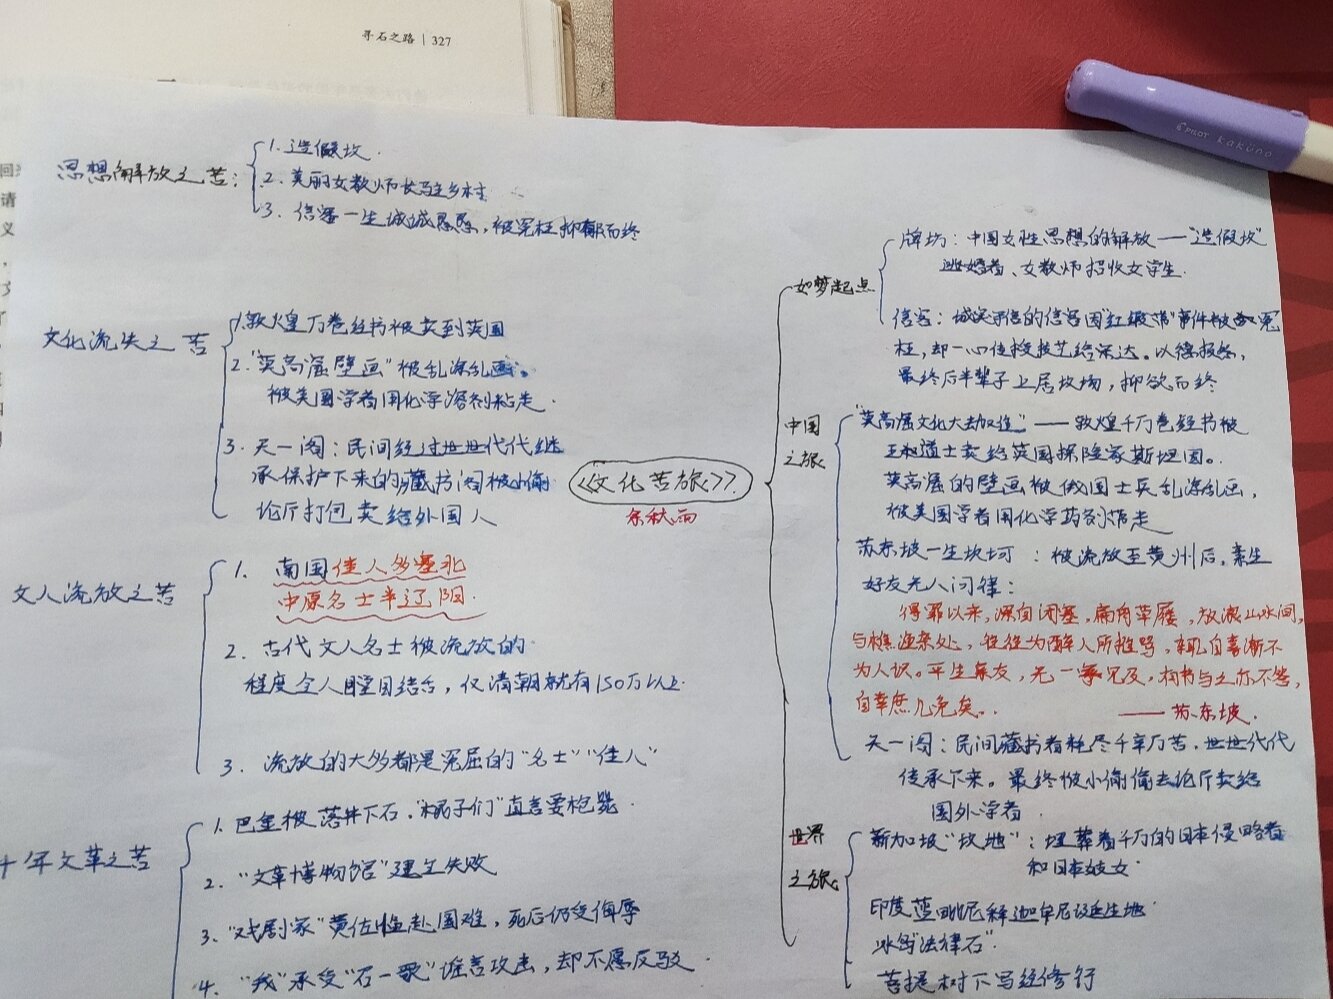 寻石之路 | 327
PILOT kakuno
思想解放之苦：
1. 造假坟.
2. 美丽女教师长驻乡村
3. 信客一生诚诚恳恳，被冤枉抑郁而终
文化流失之苦
1.敦煌万卷经书被卖到英国
2."莫高窟壁画"被乱涂乱画。
被美国学者用化学溶剂粘走.
3. 天一阁：民间经过世世代代继
承保护下来的藏书阁被小偷
论斤打包卖给外国人
文人流放之苦
1. 南国佳人多塞北
中原名士半辽阳.
2. 古代文人名士被流放的
程度令人瞠目结舌，仅清朝就有150万以上.
3. 流放的大多都是冤屈的"名士""佳人"
十年文革之苦
1. 巴金被落井下石."棍子们"直言要枪毙.
2. "文革博物馆"建立失败
3、"戏剧家"黄佐临赴国难，死后仍受侮辱
4. "我"承受"石一歌"谣言攻击，却不愿反驳.
《文化苦旅》
余秋雨
如梦起点
牌坊：中国女性思想的解放——"造假坟"
逃婚者、女教师招收女学生.
信客：诚实守信的信客因红缎带"事件被冤
枉，却一心传授技艺给来达。以德报怨，
最终后半辈子上居坟场，抑欲而终
中国
之旅
"莫高窟文化大劫难"——敦煌千万卷经书被
王道士卖给英国探险家斯坦因。
莫高窟的壁画被俄国士兵乱涂乱画，
被美国学者用化学药剂带走
苏东坡一生坎坷：被流放至黄州后，亲生
好友无人问津：
得罪以来，深自闭塞，扁舟草履，放浪山水间，
与樵渔杂处，往往为醉人所推骂，辄自喜渐不
为人识。平生亲友，无一字见及，有书与之亦不答，
自幸庶几免矣。
——苏东坡.
天一阁：民间藏书者耗尽千辛万苦，世世代代
传承下来。最终被小偷偷去论斤卖给
国外学者.
世界
之旅
新加坡"坟地"：埋葬着千万的日本侵略者
和日本妓女
印度蓝毗尼释迦牟尼诞生地.
"法律石".
菩提树下写经修行